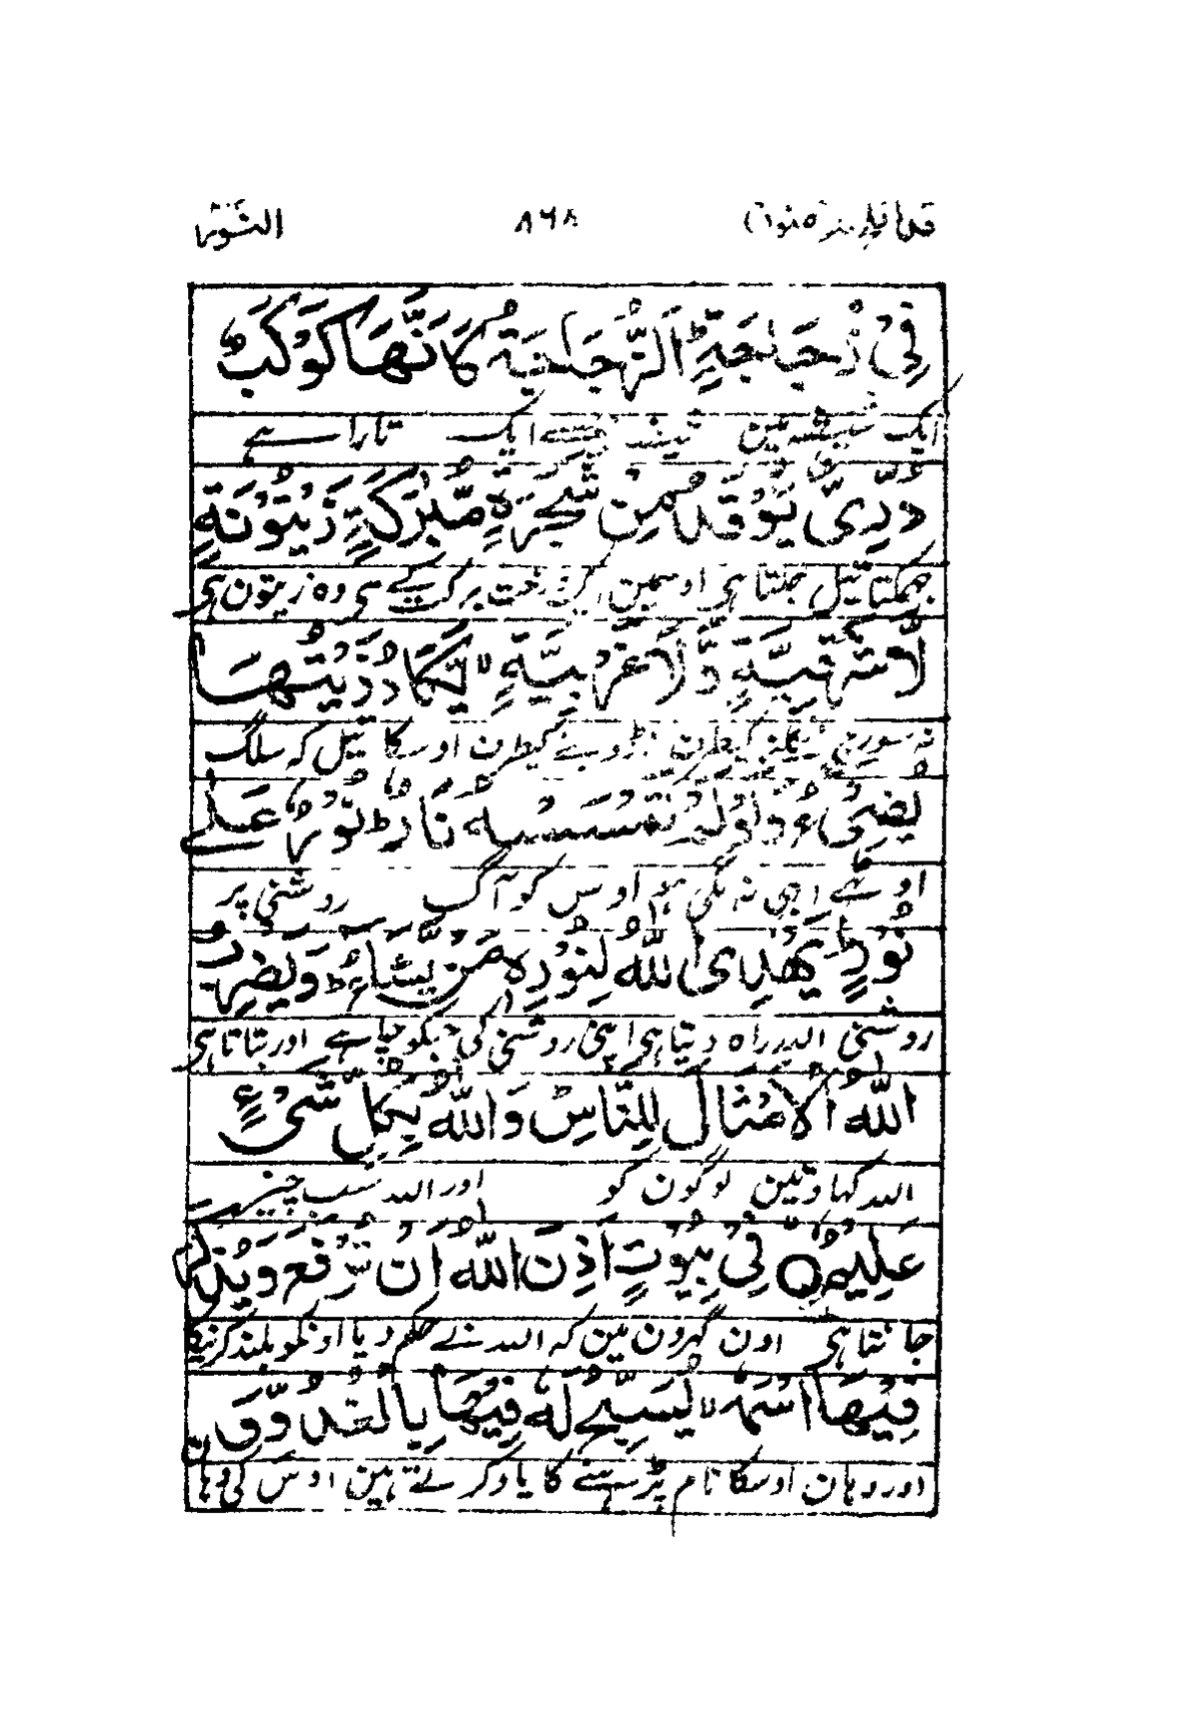 النور ٨٦٨ قد افلح
فِىْ زُجَاجَةٍ ؕ اَلزُّجَاجَةُ كَاَنَّهَا كَوْكَبٌ
ایک شیشہ مین شیشہ جیسے ایک تارا ہے
دُرِّىٌّ يُّوْقَدُ مِنْ شَجَرَةٍ مُّبٰرَكَةٍ زَيْتُوْنَةٍ
چمکتا تیل جلتا ہی اوسمین ایک درخت برکت کے سی وہ زیتون ہی
لَّا شَرْقِيَّةٍ وَّلَا غَرْبِيَّةٍ ۙ يَّكَادُ زَيْتُهَا
نہ سورج نکلنے کیطرف نہ ڈوبنے کیطرف اوسکا تیل کہ سلگ
يُضِىْٓءُ وَلَوْ لَمْ تَمْسَسْهُ نَارٌ ؕ نُوْرٌ عَلٰى
اوٹھے ابھی نہ لگی ہو اوس کو آگ روشنی پر
نُوْرٍ ؕ يَهْدِى اللّٰهُ لِنُوْرِهٖ مَنْ يَّشَآءُ ؕ وَيَضْرِبُ
روشنی اللہ راہ دیتا ہی اپنی روشنی کی جسکو چاہے اور بتاتا ہی
اللّٰهُ الْاَمْثَالَ لِلنَّاسِ ؕ وَاللّٰهُ بِكُلِّ شَىْءٍ
اللہ کہاوتین لوگون کو اور اللہ سب چیز
عَلِيْمٌ ۝ فِىْ بُيُوْتٍ اَذِنَ اللّٰهُ اَنْ تُرْفَعَ وَيُذْكَرَ
جانتا ہی اون گہرون مین کہ اللہ نے حکم دیا اونکو بلند کرنیکا
فِيْهَا اسْمُهٗ ۙ يُسَبِّحُ لَهٗ فِيْهَا بِالْغُدُوِّ وَ
اور وہان اوسکا نام پڑہنے کا یاد کرتے ہین اوس کی وہا